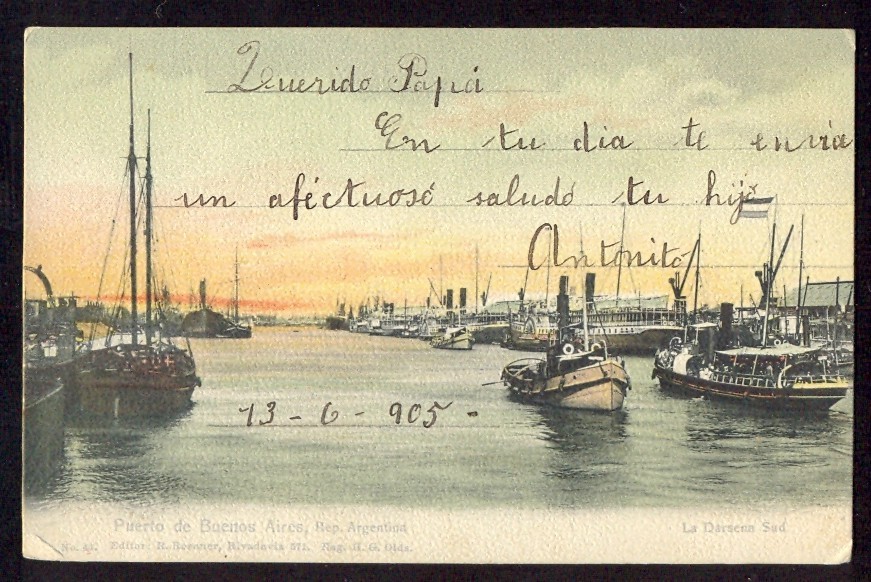 Querido Papá
En tu dia te envia
un aféctuosó saludó tu hijó
Antonito
13 - 6 - 905 -
Puerto de Buenos Aires, Rep. Argentina
La Darsena Sud
Editor: R. Rosauer, Rivadavia 571. Reg. H. G. Olds.